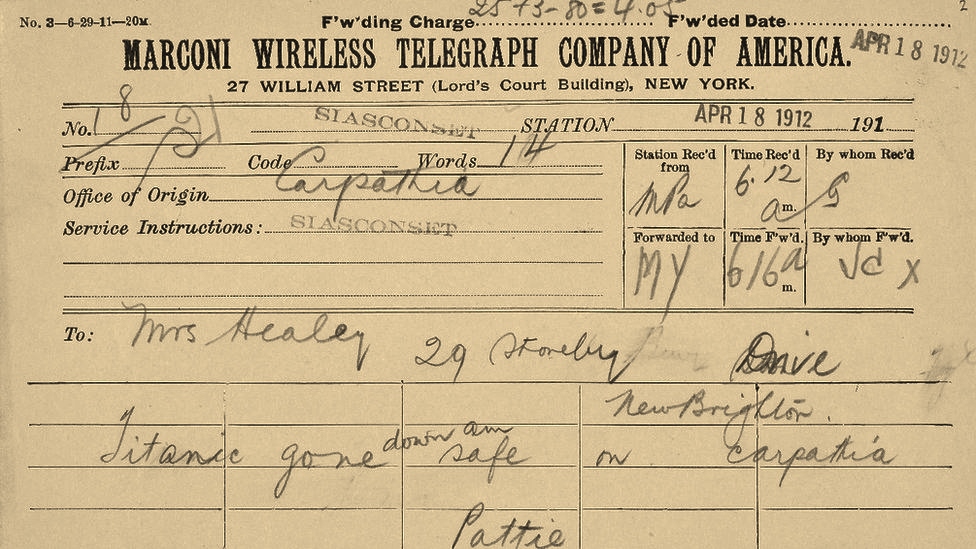 2
25 73 - 80 = 4.05
No. 3—6-29-11—20M. F'w'ding Charge F'w'ded Date
MARCONI WIRELESS TELEGRAPH COMPANY OF AMERICA. APR 18 1912
27 WILLIAM STREET (Lord's Court Building), NEW YORK.
No. 18 SIASCONSET STATION APR 18 1912 191
21
Prefix Code Words 14
Office of Origin Carpathia
Service Instructions: SIASCONSET
Station Rec'd from Time Rec'd By whom Rec'd
MPa 6.12 am. G
Forwarded to Time F'w'd. By whom F'w'd.
MY 616a m. X
To: Mrs Healey 29 Drive
New Brighton.
Titanic gone down am safe on carpathia
Pattie